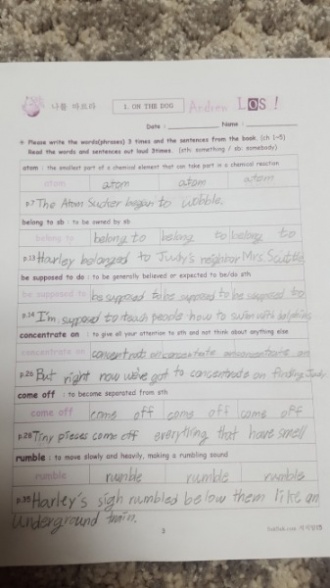 나를 따르라
1. OH THE DOG Andrew LOS!
Date : Name :
Please write the words(phrases) 3 times and the sentences from the book. (ch 1~5)
Read the words and sentences out loud 3times. (sth: something / sb: somebody)
atom : the smallest part of a chemical element that can take part in a chemical reaction
atom atom atom atom
p.7 The Atom Sucker began to wobble.
belong to sb : to be owned by sb
belong to belong to belong to belong to
p.13 Harley belonged to Judy's neighbor Mrs.
be supposed to do : to be generally believed or expected to be/do sth
be supposed to be supposed to be supposed to be supposed to
p.14 I'm supposed to teach people how to swim with dolphins
concentrate on : to give all your attention to sth and not think about anything else
concentrate on concentrate on concentrate on concentrate on
p.25 But right now we've got to concentrate on finding Judy.
come off : to become separated from sth
come off come off come off come off
p.28 Tiny pieces come off everything that have smell
rumble : to move slowly and heavily, making a rumbling sound
rumble rumble rumble rumble
p.35 Harley's sigh rumbled below them like an
underground train.
3